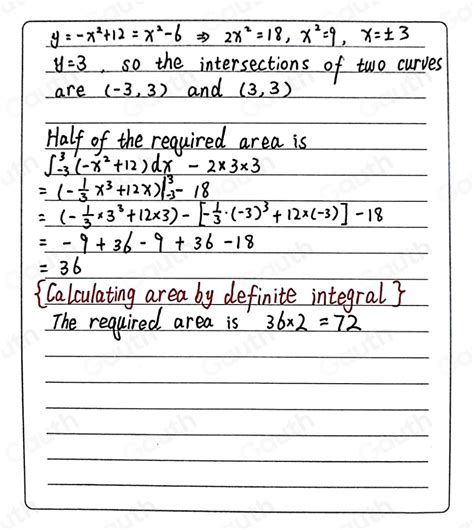 y = -x²+12 = x²-6 ⇒ 2x²=18, x²=9, x=±3
y=3, so the intersections of two curves
are (-3,3) and (3,3)
Half of the required area is
∫₋₃³(-x²+12)dx - 2×3×3
= (-1/3 x³+12x)|₋₃³ - 18
= (-1/3 × 3³+12×3) - [-1/3·(-3)³+12×(-3)] - 18
= -9+36-9+36-18
= 36
{Calculating area by definite integral}
The required area is 36×2=72